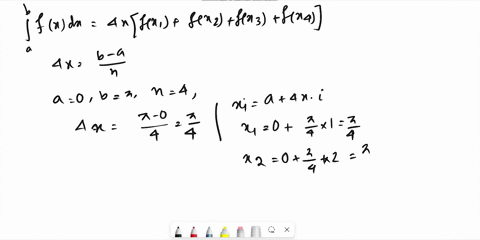 ∫ₐᵇ f(x)dx = Δx[f(x1)+ f(x2)+f(x3)+f(x4)]
Δx = b-a/n
a=0, b=π, n=4,
Δx = π-0/4 = π/4
xi = a+Δx·i
x1 = 0+ π/4 ×1 = π/4
x2 = 0+ π/4 ×2 = π